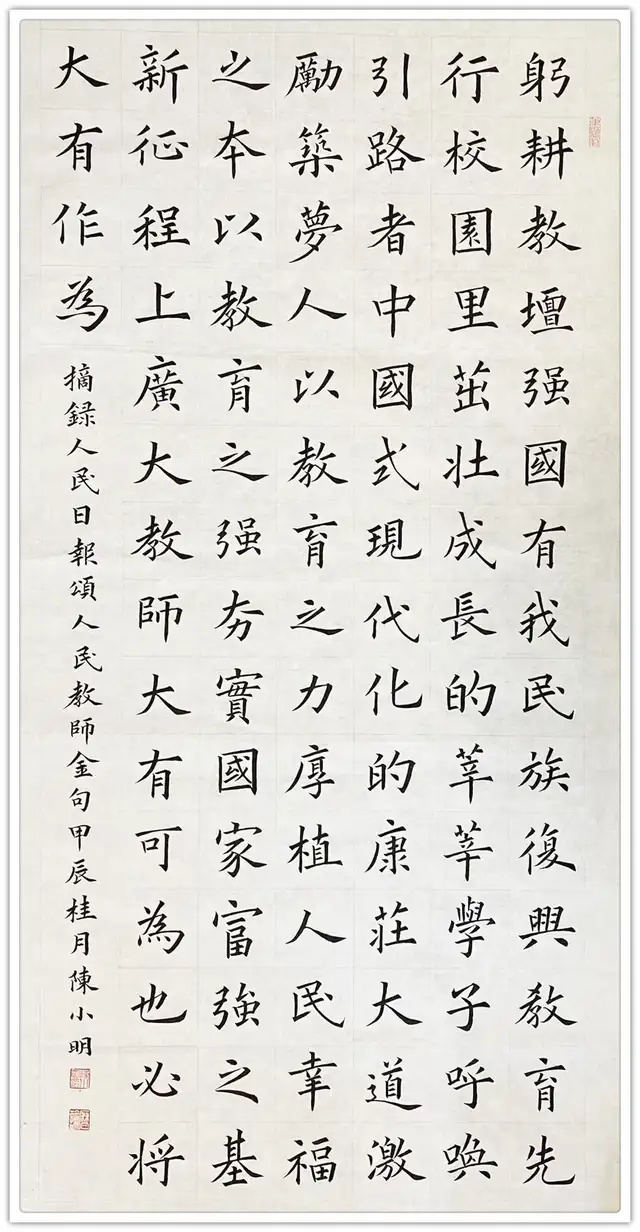 躬耕教壇强國有我民族復興教育先
行校園里茁壯成長的莘莘學子呼喚
引路者中國式現代化的康莊大道激
勵築夢人以教育之力厚植人民幸福
之本以教育之强夯實國家富強之基
新征程上廣大教師大有可為也必將
大有作為
摘録人民日報頌人民教師金句甲辰桂月陳小明